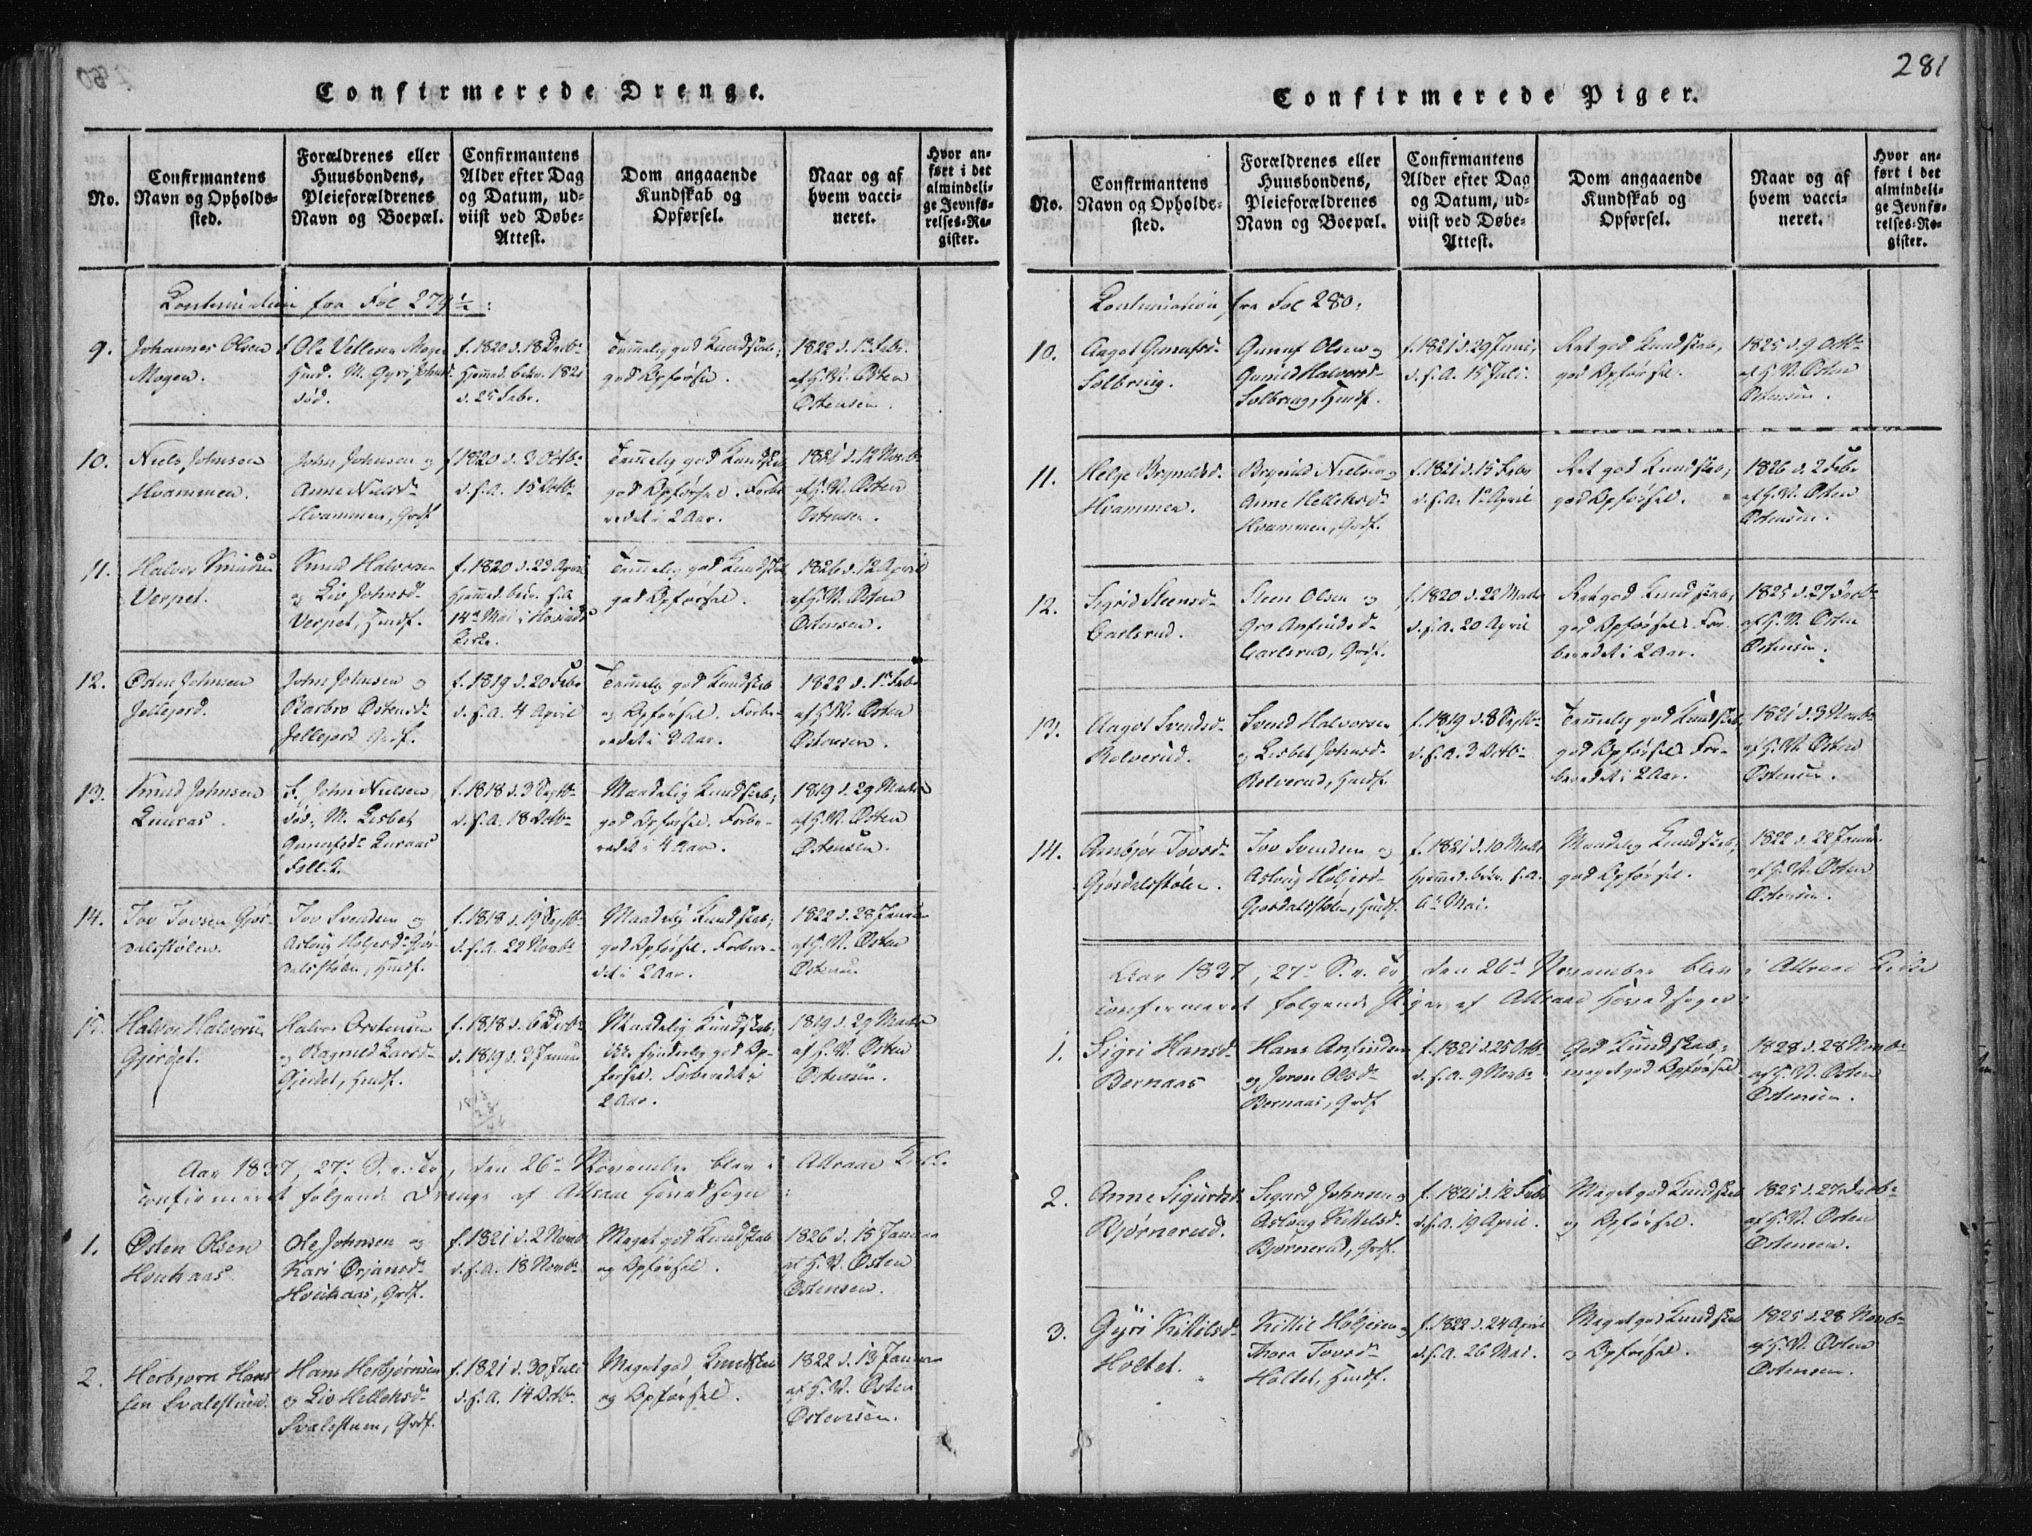 281
Confirmerede Drenge.
No.
Confirmantens
Navn og Opholds-
sted.
Forældrenes eller
Huusbondens,
Pleieforældrenes
Navn og Boepæl.
Confirmantens
Alder efter Dag
og Datum, ud-
viist ved Døbe-
Attest.
Dom angaaende
Kundskab og
Opførsel.
Naar og af
hvem vacci-
neret.
Hvor an-
ført i det
almindeli-
ge Jevnfø-
relses-Re-
gister.
Continuation fra Fol 279 1/2:
9.
Johannes Olsen
Mogen.
Ole Vetlesen Mogen
Huusd. M. Gyri
død.
f. 1820 d. 18 Decbr
Hjemmed. bekr. 1821
d. 25 Febr.
Temmelig god Kundskab,
god Opførsel.
1822 d. 1st Febr.
af H. N. Østen
Østensen.
10.
Niels Johnsen
Hvammen.
John Johnsen og
Anne Nielsd.
Hvammen, Grdf.
f 1820 d. 3 Octbr
d. s. A. 15 Octbr
Temmelig god Kundskab
god Opførsel. Forbe-
redet i 2 Aar.
1821 d. 12 Novbr
af H. N. Østen
Østensen.
11.
Halvor Knudsen
Verpet.
Knud Halvorsen
og Liv Johnsd.
Verpet, Huusf.
f. 1820 d. 29 April
Hjemmed. bekr. s. A.
14de Mai i Hovind
Kirke.
Temmelig god Kundskab
god Opførsel.
1826 d. 12 April
af H. N. Østen
Østensen.
12.
Østen Johnsen
Jellejord.
John Johnsen og
Barbro Østensd.
Jellejord Grdf.
f. 1819 d. 20 Febr
d. s. A. 4 April
Temmelig god Kundskab
og Opførsel. Forbe-
redet i 3 Aar.
1822 d. 1st Febr
af H. N. Østen
Østensen.
13.
Knud Johnsen
Luraas.
F. John Nielsen,
død; M. Lisbet
Gunulfsd. Luraas
f. 1818 d. 3 Septbr
d. s. A. 18 Octbr
Maadelig Kundskab;
god Opførsel. Forbe-
redet i 4 Aar.
1819 d. 29 Marts
af H. N. Østen
Østensen.
14.
Tov Tovsen Gjøs-
dalsstølen.
Tov Svendsen og
Asloug Høljesd. Gjøs-
dalsstølen, Huusf.
f. 1818 d. 19 Septbr
d. s. A. 22 Novbr
Maadelig Kundskab;
god Opførsel. Forbere-
det i 2 Aar.
1822 d. 28 Januar
af H. N. Østen
Østensen
15.
Halvor Halvorsen
Gjerdet.
Halvor Østensen
og Ragnild Larsd.
Gjerdet, Huusf.
f. 1818 d. 6 Decbr
d. 1819 d. 3 Januar
Maadelig Kundskab;
ikke synderlig god Op-
førsel. Forberedet i
2 Aar.
1819 d. 29 Marts
af H. N. Østen
Østensen.
Aar 1837, 27de S. e. Tr., den 26de November blev i Attraae Kirke
confirmeret følgende Drenge af Attraae Hovedsogn:
1.
Østen Olsen
Hovkaas
Ole Johnsen og
Kari Ørjansd.
Hovkaas, Grdf.
f. 1821 d. 2 Novbr
d. s. A. 18 Novbr
Meget god Kundskab
og Opførsel.
1826 d. 15 Januar
af H. N. Østen
Østensen.
2.
Herbjørn Han-
sen Svalestuen.
Hans Herbjørnsen
og Liv Helleksd.
Svalestuen, Grdf.
f. 1821 d. 30 Juli
d. s. A. 14 Octbr.
Meget god Kundskab
og Opførsel.
1822 d. 13 Januar
af H. N. Østen
Østensen.
Confirmerede Piger.
No.
Confirmantens
Navn og Opholds-
sted.
Forældrenes eller
Huusbondens,
Pleieforældrenes
Navn og Boepæl.
Confirmantens
Alder efter Dag
og Datum, ud-
viist ved Døbe-
Attest.
Dom angaaende
Kundskab og
Opførsel.
Naar og af
hvem vacci-
neret.
Hvor an-
ført i det
almindeli-
ge Jevnfø-
relses-Re-
gister.
Continuation fra Fol 280:
10.
Aagot Gunulfsd.
Solbrug.
Gunuf Olsen og
Gunild Halvorsd.
Solbrug, Huusf.
f. 1821 d. 29 Juni,
d. s. A. 15 Juli.
Ret god Kundskab,
god Opførsel.
1825 d. 9 Octbr
af H. N. Østen
Østensen.
11.
Helge Brynildsd.
Hvammen.
Brynild Nielsen og
Anne Helleksd.
Hvammen, Grdf.
f. 1821 d. 15 Febr
d. s. A. 1st April
Ret god Kundskab,
god Opførsel.
1826 d. 2 Febr
af H. N. Østen
Østensen.
12.
Sigrid Steensd.
Carlsrud.
Steen Olsen og
Gro Anfindsd.
Carlsrud, Grdf.
f. 1820 d. 22 Marts
d. s. A. 20 April
Ret god Kundskab,
god Opførsel. For-
beredet i 2 Aar.
1825 d. 27 Decbr
af H. N. Østen
Østensen.
13.
Aagot Svendsd.
Bolverud.
Svend Halvorsen
og Lisbet Johnsd.
Bolverud, Huusf.
f. 1819 d. 8 Septbr
d. s. A. 3 Octbr
Temmelig god Kundskab,
god Opførsel. For-
beredet i 2 Aar.
1821 d. 3 Novbr
af H. N. Østen
Østensen.
14.
Anbjør Tovsd.
Gjøsdalsstølen.
Tov Svendsen og
Asloug Høljesd.
Gjøsdalsstølen, Huusf.
f. 1821 d. 10 Marts
Hjemmed. bekr. s. A.
6te Mai.
Maadelig Kundskab,
god Opførsel.
1822 d. 22 Januar
af H. N. Østen
Østensen.
Aar 1837, 27de S. e. Tr., den 26de November blev i Attraae Kirke
confirmeret følgende Piger af Attraae Hovedsogn:
1.
Sigri Hansd.
Bernaas
Hans Anfindsen
og Joron Olsd.
Bernaas, Grdf
f. 1821 d. 25 Octbr
d. s. A. 9 Novbr
God Kundskab,
meget god Opførsel
1828 d. 28 Novbr
af H. N. Østen
Østensen.
2.
Anne Sigurdsd.
Bjørnerud.
Sigurd Johnsen og
Asloug Kittelsd.
Bjørnerud, Grdf.
f. 1821 d. 12 Febr
d. s. A. 19 April.
Meget god Kundskab
og Opførsel.
1825 d. 27 Decbr
af H. N. Østen
Østensen.
3.
Gyri Kittilsd.
Holtet.
Kittil Høljesen og
Thora Tovsd.
Holtet, Huusf.
f. 1822 d. 24 April
d. s. A. 26 Mai.
Meget god Kundskab
og Opførsel.
1825 d. 28 Novbr
af H. N. Østen
Østensen.